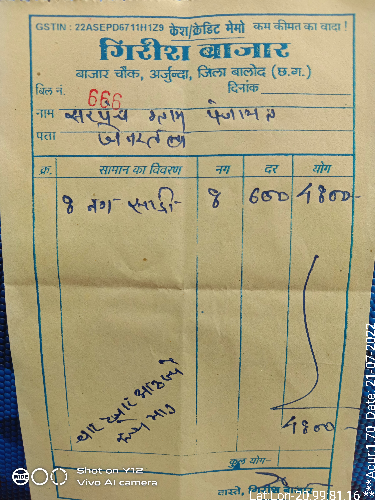 GSTIN : 22ASEPD6711H1Z9 केश/क्रेडिट मेमो कम कीमत का वादा !
गिरीश बाजार
बाजार चौक, अर्जुन्दा, जिला बालोद (छ.ग.)
बिल नं. 666 दिनांक
नाम सरपंच ग्राम पंचायत
पता
क्र. सामान का विवरण नग दर योग
8 नग साड़ी 8 600 4800
चार हजार आठ सौ
रूपये मात्र
4800
कुल योग-
वास्ते, गिरीश बाजार
Shot on Y12
Vivo AI camera
Lat,Lon-20.99,81.16 ***Acur:1.70 Date: 21-07-2022